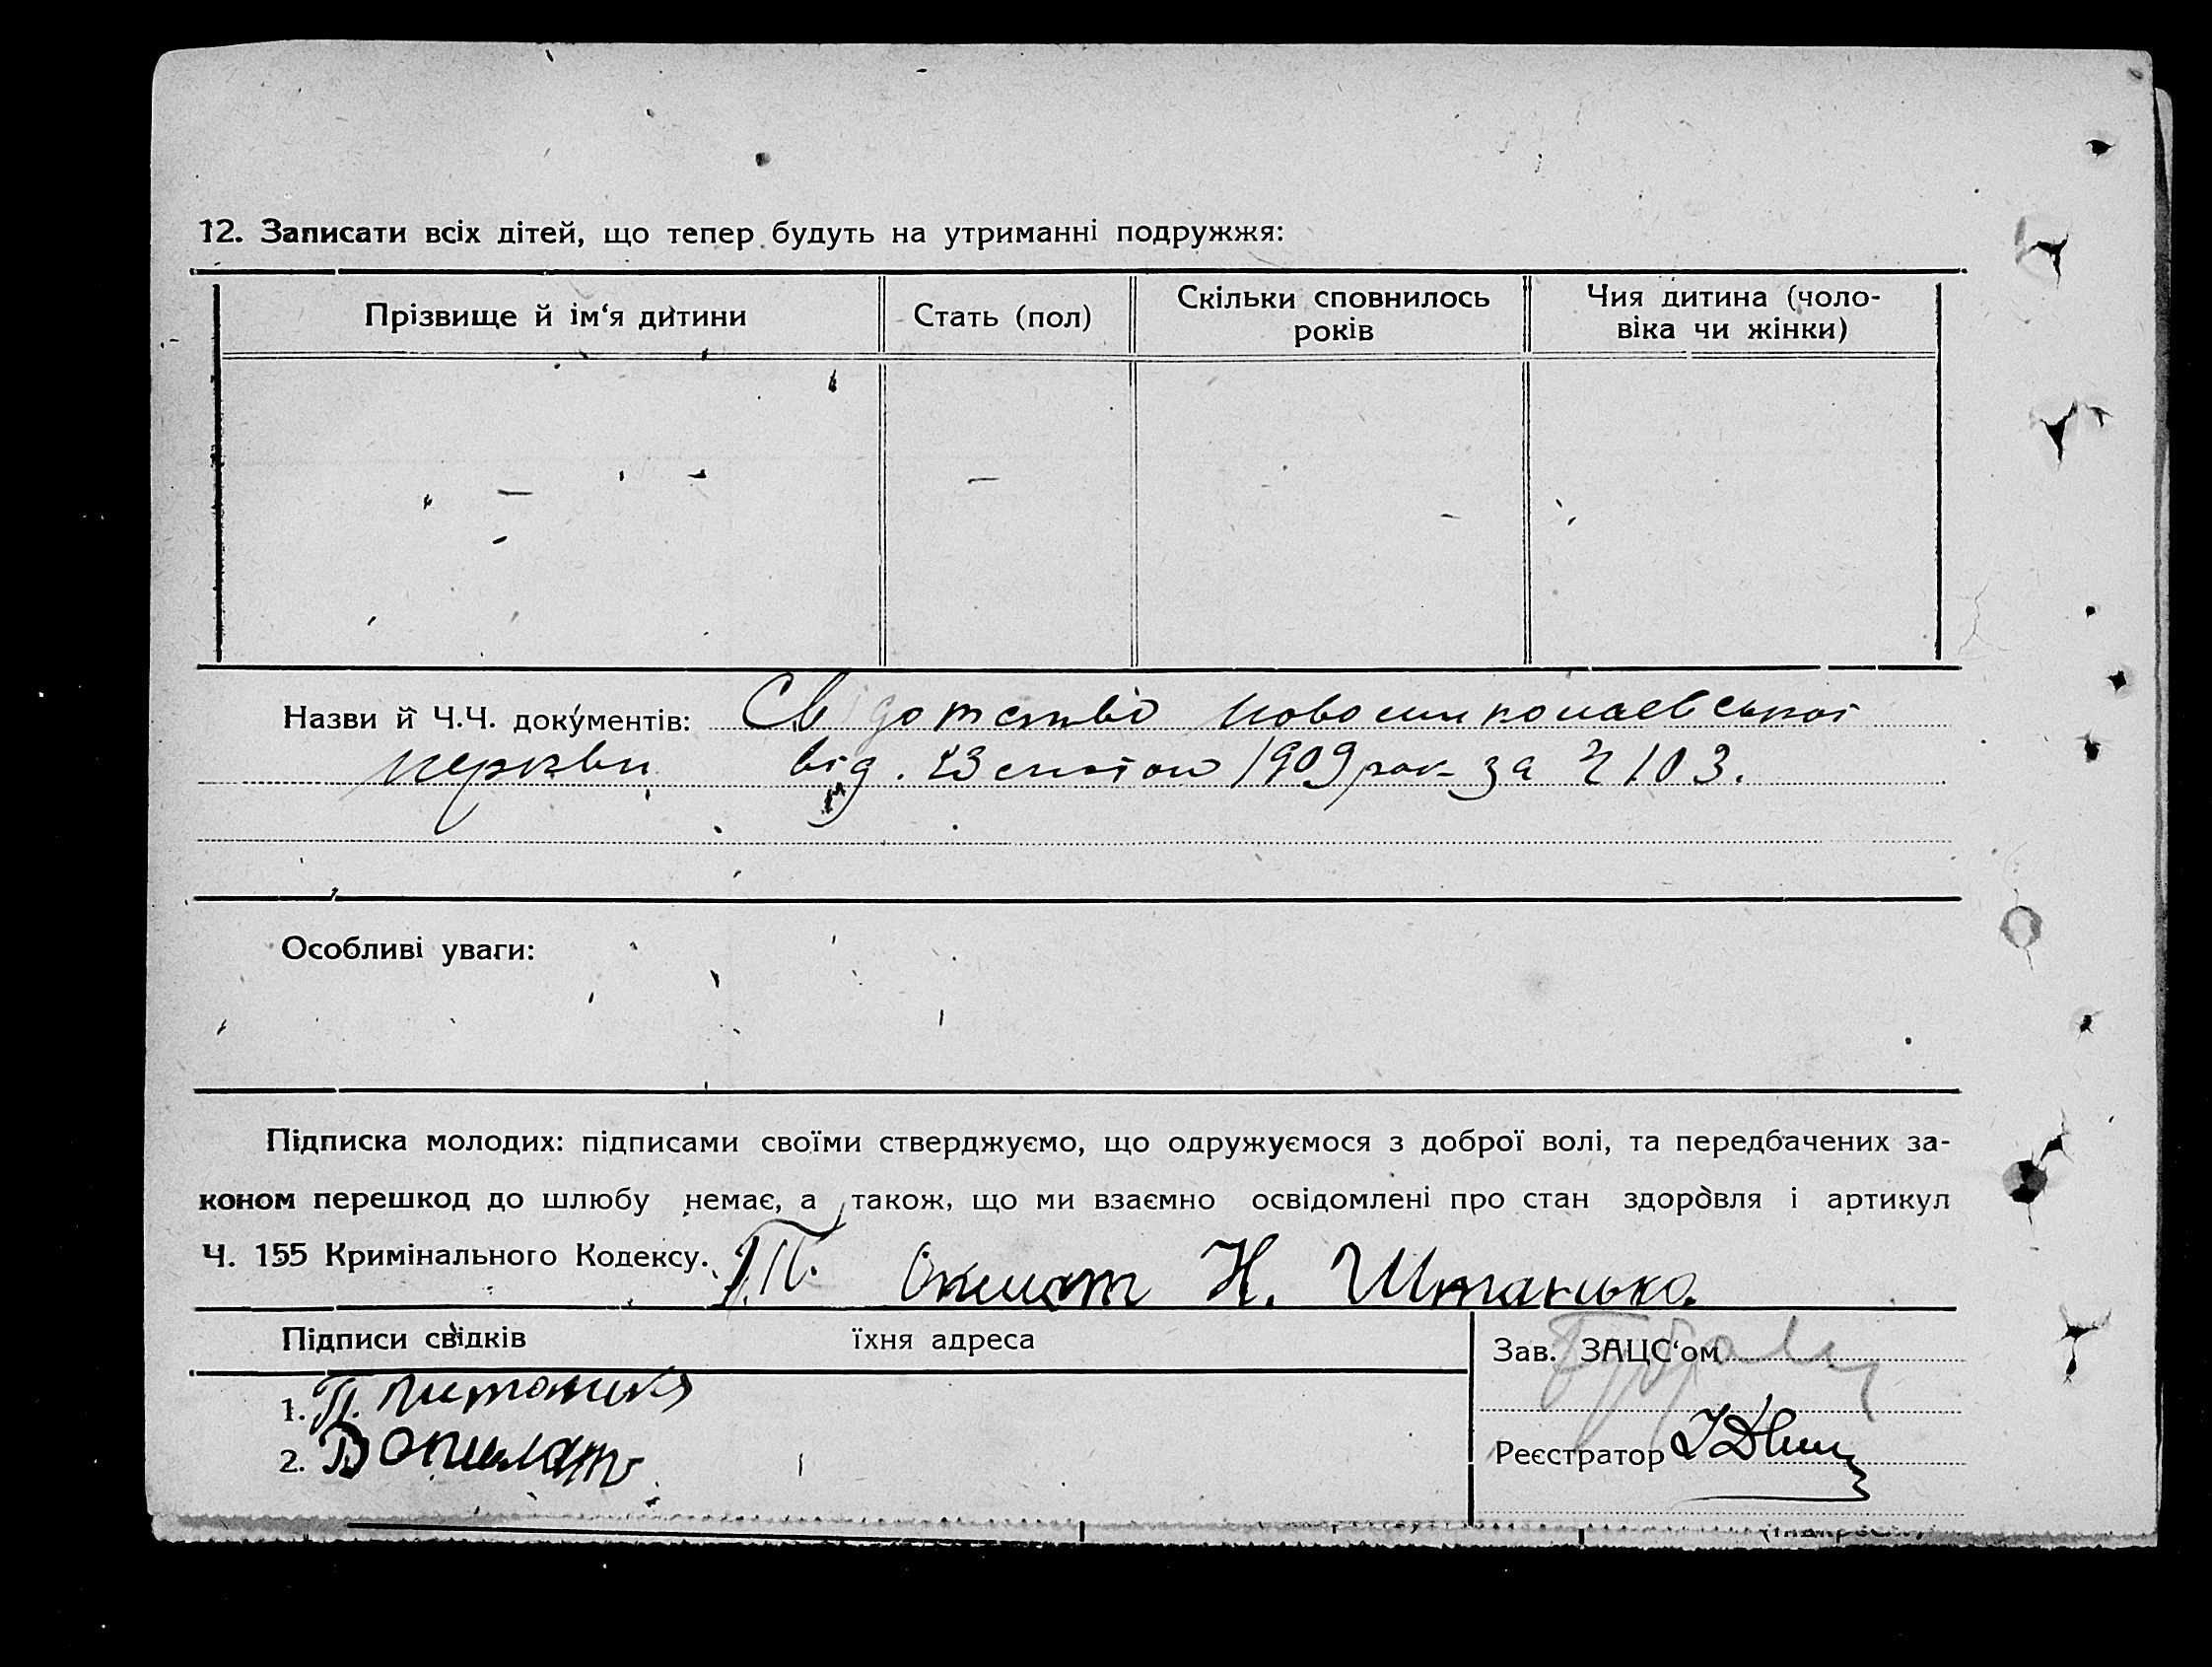 12. Записати всіх дітей, що тепер будуть на утриманні подружжя:
Прізвище й ім‘я дитини
Стать (пол)
Скільки сповнилось
років
Чия дитина (чоло-
віка чи жінки)
Назви й Ч.Ч. документів: Свідотство
церкви від. 23 1909 рок за Ч 103.
Особливі уваги:
Підписка молодих: підписами своїми стверджуємо, що одружуємося з доброї волі, та передбачених за-
коном перешкод до шлюбу немає, а також, що ми взаємно освідомлені про стан здоровля і артикул
Ч. 155 Кримінального Кодексу. Н. Штанько.
Підписи свідків їхня адреса
Зав. ЗАЦС‘ом
1. П.
2. В
Реєстратор